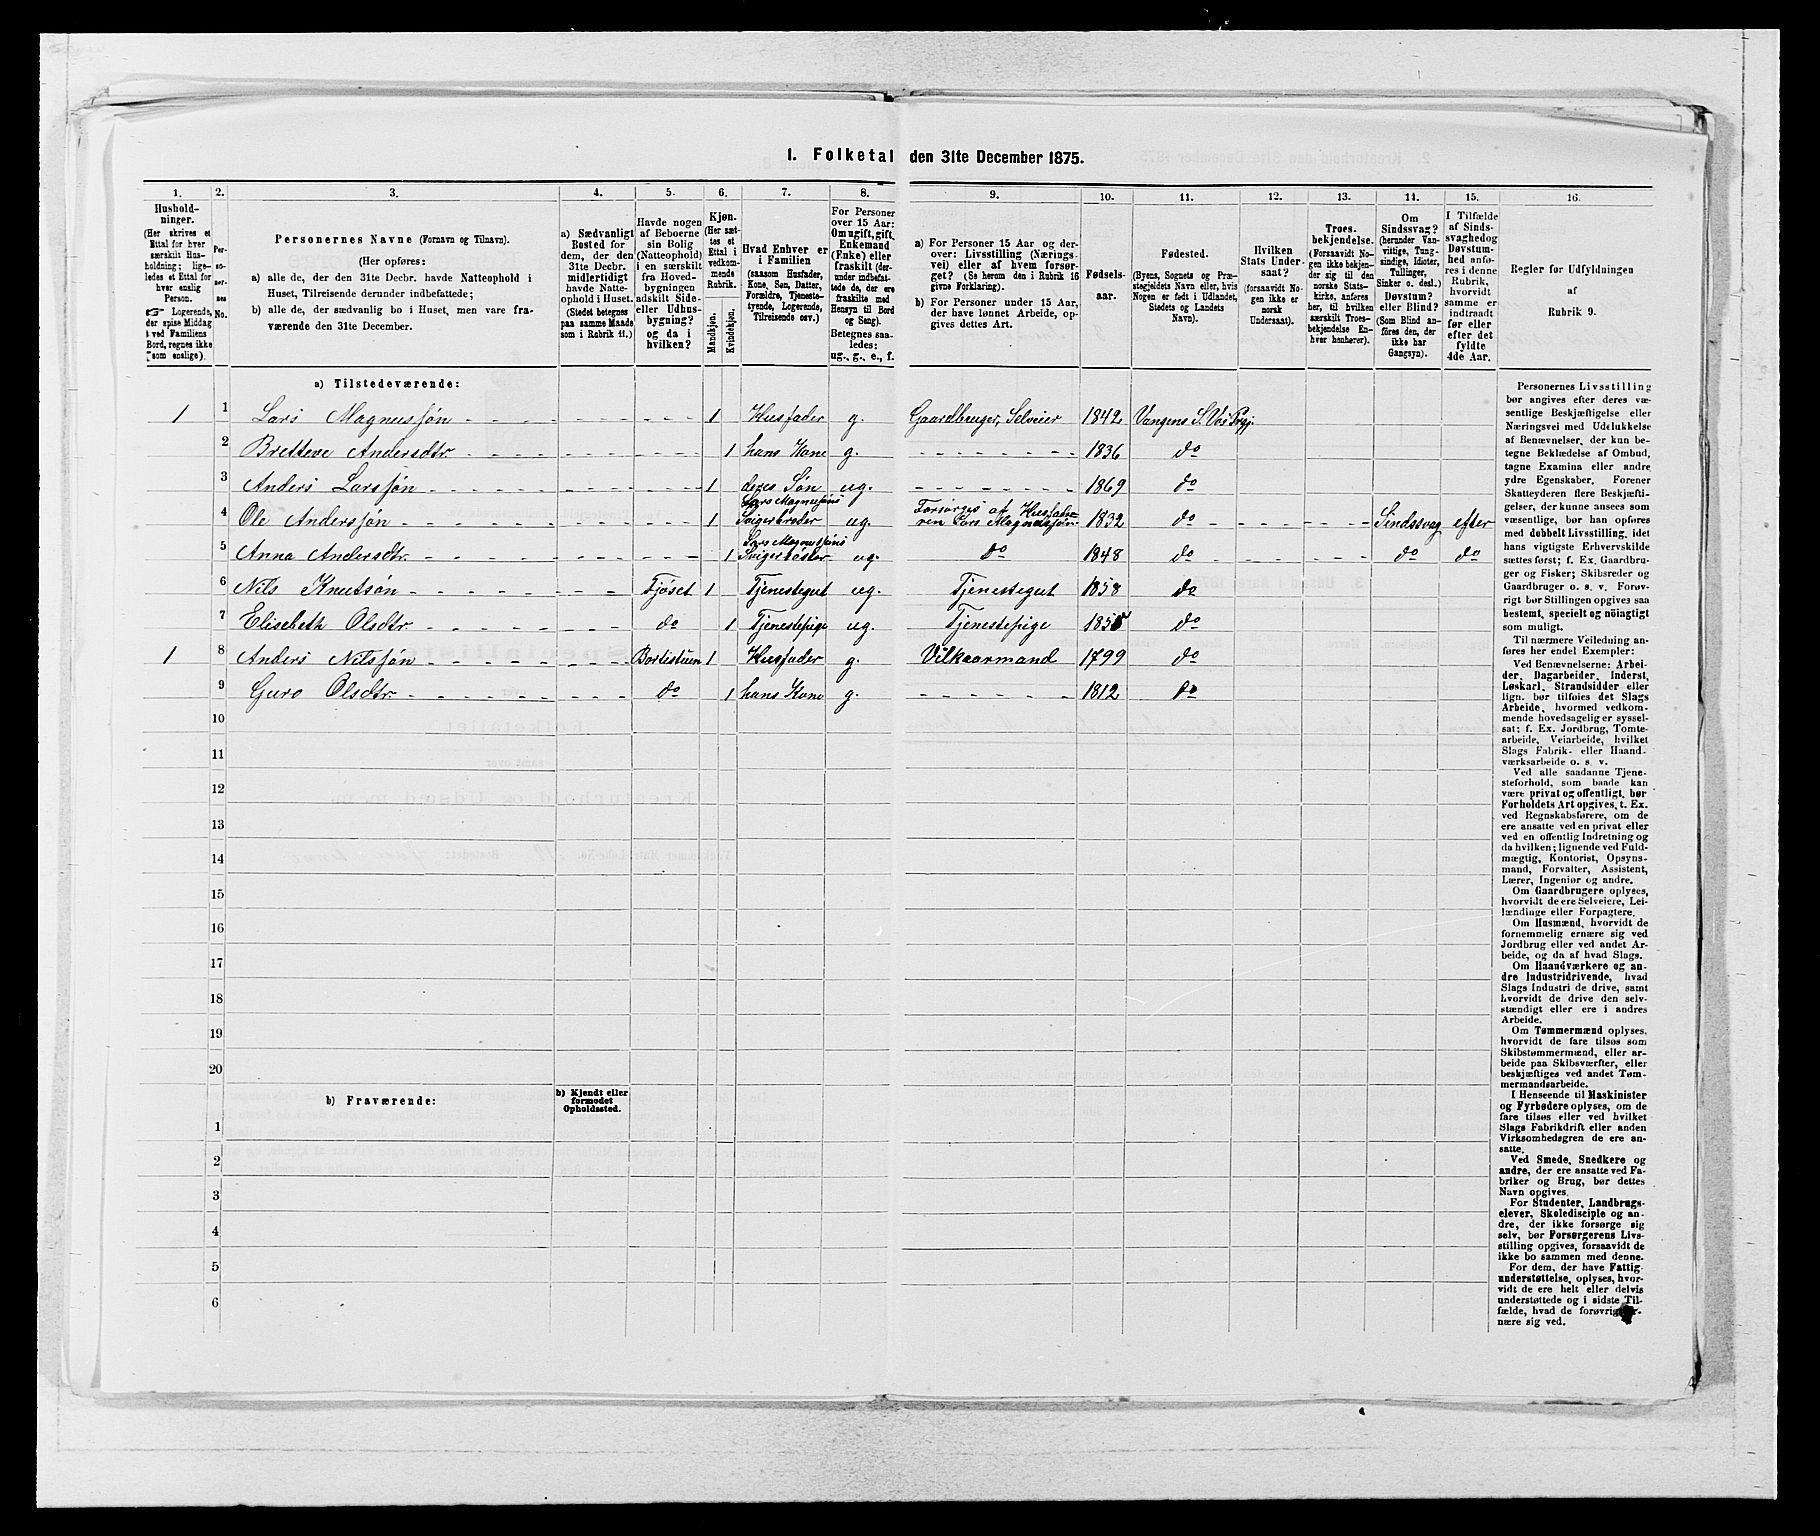 1. Folketal den 31te December 1875.
1. 2. 3. 4. 5. 6. 7. 8. 9. 10. 11. 12. 13. 14. 15. 16.
Hushold-
ninger.
(Her skrives et
Ettal for hver
særskilt Hus-
holdning; lige-
ledes et Ettal for
hver enslig
Person.
☞ Logerende,
der spise Middag
ved Familiens
Bord, regnes ikke
som enslige).
Per-
so-
ner-
nes
No.
Personernes Navne (Fornavn og Tilnavn).
(Her opføres:
a) alle de, der den 31te Decbr. havde Natteophold i
Huset, Tilreisende derunder indbefattede;
b) alle de, der sædvanlig bo i Huset, men vare fra-
værende den 31te December.
a) Sædvanligt
Bosted for
dem, der den
31te Decbr.
midlertidigt
havde Natte-
ophold i Huset.
(Stedet betegnes
paa samme Maade
som i Rubrik 11.)
Havde nogen
af Beboerne
sin Bolig
(Natteophold)
i en særskilt
fra Hoved-
bygningen
adskilt Side-
eller Udhus-
bygning?
og da i
hvilken?
Kjøn.
(Her sæt-
tes et
Ettal i
vedkom-
mende
Rubrik.
Mandkjøn.
Kvindekjøn.
Hvad Enhver er
i Familien
(saasom Husfader,
Kone, Søn, Datter,
Forældre, Tjeneste-
tyende, Logerende,
Tilreisende osv.)
For Personer
over 15 Aar:
Om ugift, gift,
Enkemand
(Enke) eller
fraskilt (der-
under indbefat-
tede de, der ere
fraskilte med
Hensyn til Bord
og Seng).
Betegnes saa-
ledes:
ug., g., e., f.
a) For Personer 15 Aar og der-
over: Livsstilling (Nærings-
vei) eller af hvem forsør-
get? (Se herom den i Rubrik 16
givne Forklaring).
b) For Personer under 15 Aar,
der have lønnet Arbeide, op-
gives dettes Art.
Fødsels-
aar.
Fødested.
(Byens, Sognets og Præ-
stegjeldets Navn eller, hvis
Nogen er født i Udlandet,
Stedets og Landets
Navn).
Hvilken
Stats Under-
saat?
(forsaavidt No-
gen ikke er
norsk
Undersaat).
Troes-
bekjendelse.
(Forsaavidt No-
gen ikke bekjen-
der sig til den
norske Stats-
kirke, anføres
her, til hvilken
særskilt Troes-
bekjendelse En-
hver henhører).
Om
Sindssvag?
(herunder Van-
vittige, Tung-
sindige, Idioter,
Tullinger,
Sinker o. desl.)
Døvstum?
eller Blind?
(Som Blind an-
føres den, der
ikke har
Gangsyn).
I Tilfælde
af Sinds-
svaghed og
Døvstum-
hed anfø-
res i denne
Rubrik,
hvorvidt
samme er
indtraadt
før eller
efter det
fyldte
4de Aar.
Regler for Udfyldningen
af
Rubrik 9.
a) Tilstedeværende:
1 1 Lars Magnussøn 1 Husfader g. Gaardbruger, Selveier 1842 Vangens S. Vos Prgj.
2 Bretteve Andersdtr 1 hans Kone g. 1836 do
3 Anders Larssøn 1 deres Søn ug. 1869 do
4 Ole Anderssøn 1 Lars Magnussøns Svigerbroder ug. Forsørges af Husfaderen Lars Magnussøn 1832 do Sindssvag efter
5 Anna Andersdtr. 1 Lars Magnussøns Svigersøster ug. do 1848 do do do
6 Nils Knutsøn Fjøset 1 Tjenestegut ug. Tjenestegut 1858 do
7 Elisebeth Olsdtr do 1 Tjenestepige ug. Tjenestepige 1855 do
1 8 Anders Nilssøn 1 Husfader g. Vilkaarmand 1799 do
9 Guro Olsdtr do 1 hans Kone g. 1812 do
10
11
12
13
14
15
16
17
18
19
20
b) Fraværende:
b) Kjendt eller
formodet
Opholdssted.
1
2
3
4
5
6
Personernes Livsstilling
bør angives efter deres væ-
sentlige Beskjæftigelse eller
Næringsvei med Udelukkelse
af Benævnelser, der kun be-
tegne Beklædelse af Ombud,
tagne Examina eller andre
ydre Egenskaber. Forener
Skatteyderen flere Beskjæfti-
gelser, der kunne ansees som
væsentlige, bør han opføres
med dobbelt Livsstilling, idet
hans vigtigste Erhvervskilde
sættes først; f. Ex. Gaardbru-
ger og Fisker; Skibsreder og
Gaardbruger o. s. v. Forøv-
rigt bør Stillingen opgives saa
bestemt, specielt og nøiagtigt
som muligt.
Til nærmere Veiledning an-
føres her endel Exempler:
Ved Benævnelserne: Arbei-
der, Dagarbeider, Inderst,
Løskarl, Strandsidder eller
lign. bør tilføies det Slags
Arbeide, hvormed vedkom-
mende hovedsagelig er syssel-
sat; f. Ex. Jordbrug, Tomte-
arbeide, Veiarbeide, hvilket
Slags Fabrik- eller Haand-
værksarbeide o. s. v.
Ved alle saadanne Tjene-
steforhold, som baade kan
være privat og offentligt, bør
Forholdets Art opgives, t. Ex.
ved Regnskabsførere, om de
ere ansatte ved en privat eller
ved en offentlig Indretning og
da hvilken; lignende ved Fuld-
mægtig, Kontorist, Opsyns-
mand, Forvalter, Assistent,
Lærer, Ingeniør og andre.
Om Gaardbrugere oplyses,
hvorvidt de ere Selveiere, Lei-
lændinge eller Forpagtere.
Om Husmænd, hvorvidt de
fornemmelig ernære sig ved
Jordbrug eller ved andet Ar-
beide, og da af hvad Slags.
Om Haandværkere og an-
dre Industridrivende, hvad
Slags Industri de drive, samt
hvorvidt de drive den selv-
stændigt eller ere i andres
Arbeide.
Om Tømmermænd oplyses,
hvorvidt de fare tilsøs som
Skibstømmermænd, eller ar-
beide paa Skibsværfter, eller
beskjæftiges ved andet Tøm-
mermandsarbeide.
I Henseende til Maskinister
og Fyrbødere oplyses, om de
fare tilsøs eller ved hvilket
Slags Fabrikdrift eller anden
Virksomhedsgren de ere an-
satte.
Ved Smede, Snedkere og
andre, der ere ansatte ved Fa-
briker og Brug, bør dettes
Navn opgives.
For Studenter, Landbrugs-
elever, Skoledisciple og an-
dre, der ikke forsørge sig
selv, bør Forsørgerens Livs-
stilling opgives, forsaavidt de
ikke bo sammen med denne.
For dem, der have Fattig-
understøttelse, oplyses, hvor-
vidt de ere helt eller delvis
understøttede og i sidste Til-
fælde, hvad de forøvrigt er-
nære sig ved.